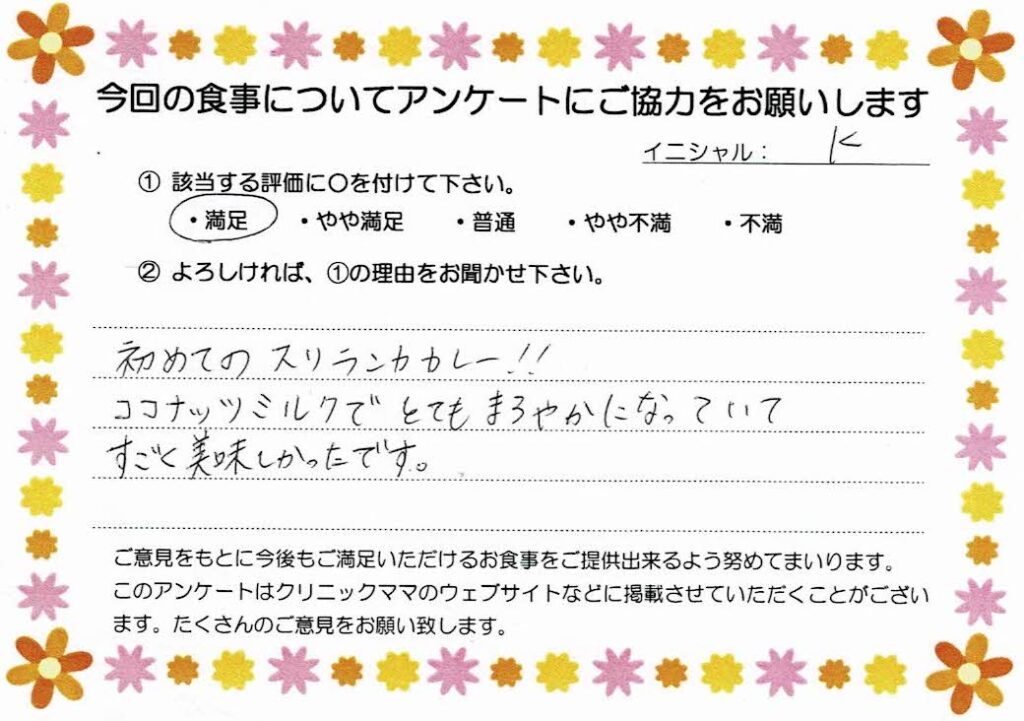 今回の食事についてアンケートにご協力をお願いします
イニシャル： K
① 該当する評価に〇を付けて下さい。
・満足 ・やや満足 ・普通 ・やや不満 ・不満
② よろしければ、①の理由をお聞かせ下さい。
初めてのスリランカカレー!!
ココナッツミルクでとてもまろやかになっていて
すごく美味しかったです。
ご意見をもとに今後もご満足いただけるお食事をご提供出来るよう努めてまいります。
このアンケートはクリニックママのウェブサイトなどに掲載させていただくことがござい
ます。たくさんのご意見をお願い致します。